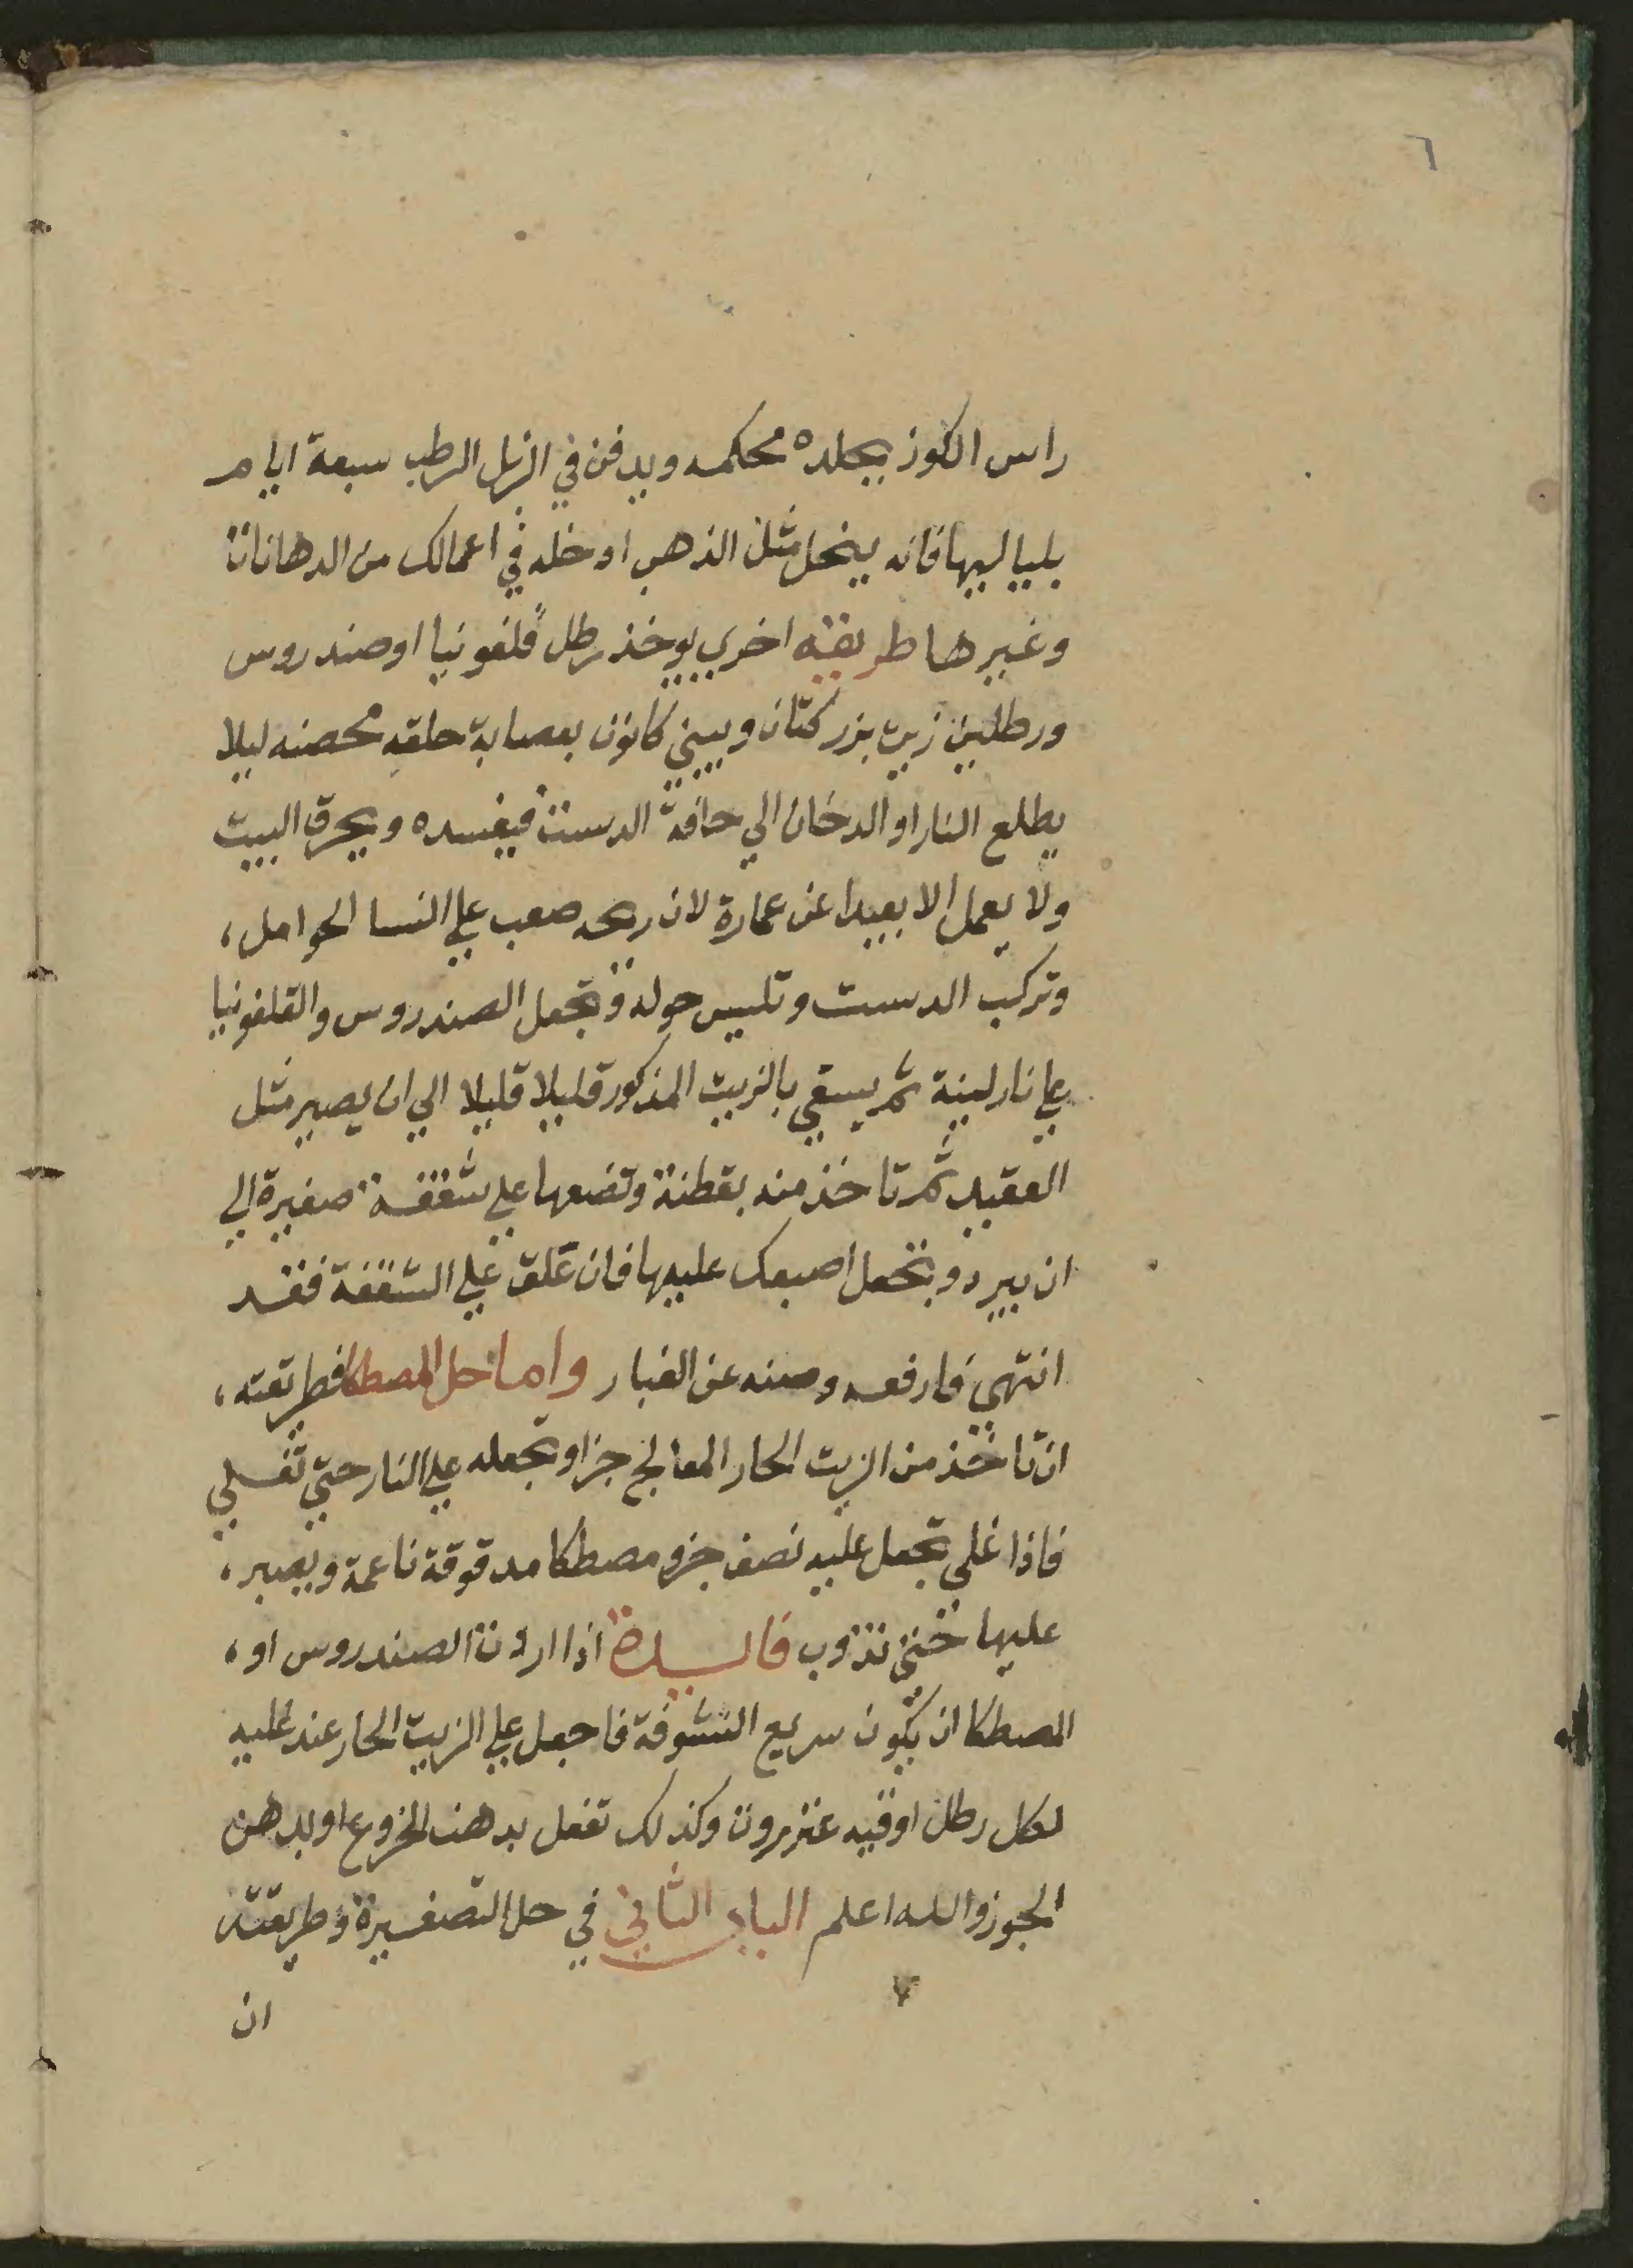 ٦
راس الكوز بجلده محكمه ويدفن في الزبل الرطب سبعة ايام
بلياليها فانه ينحل مثل الذهب ادخله في اعمالك من الدهانات
وغيرها طريقة اخري يوخذ رطل قلفونيا او صندروس
ورطلين زيت بزر كتان ويبني كانون بعصابة حلقه محصنه ليلا
يطلع النار او الدخان الي حافة الدست فيفسده ويحرق البيت
ولا يعمل الا بعيدا عن عمارة لان ريحه صعب علي النسا الحوامل،
وتركب الدست وتلبس حوله وتجعل الصندروس والقلفونيا
علي نار لينة ثم يسقي بالزيت المذكور قليلا قليلا الي ان يصير مثل
العقيد ثم تاخذ منه بقطنة وتضعها علي شقفة صغيرة الي
ان يبرد وتجعل اصبعك عليها فان علق علي الشقفة فقد
انتهي فارفعه وصنه عن الغبار واما حل المصطكا فطريقته،
ان تاخذ من الزيت الحار المعالج جزا وتجعله علي النار حتي تغلي
فاذا غلي تجعل عليه نصف جزو مصطكا مدقوقة ناعمة ويصبر،
عليها حتي تذوب فايدة اذا اردت الصندروس او،
المصطكا ان يكون سريع النشوفة فاجعل علي الزيت الحار عند غليه
لكل رطل اوقيه عنزروت وكذلك تفعل بدهن الخروع او بدهن
الجوز والله اعلم الباب الثاني في حل التصفيرة وطريقته
٧
ان